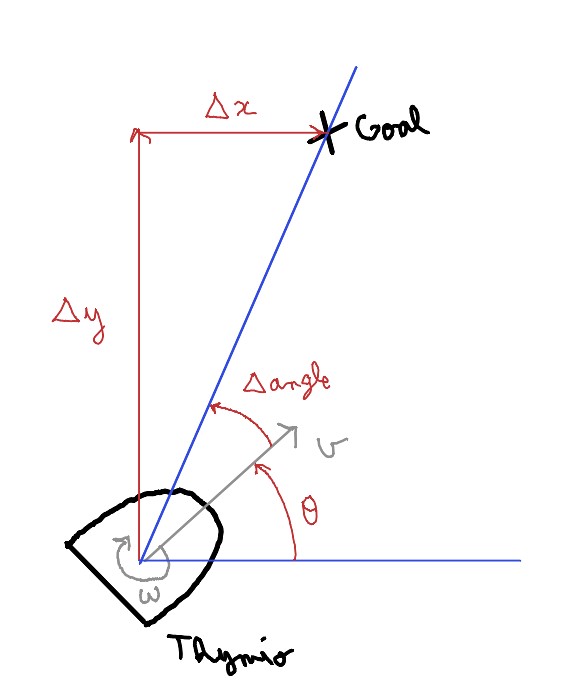 Δx
Goal
Δy
Δangle
v
θ
ω
Thymio